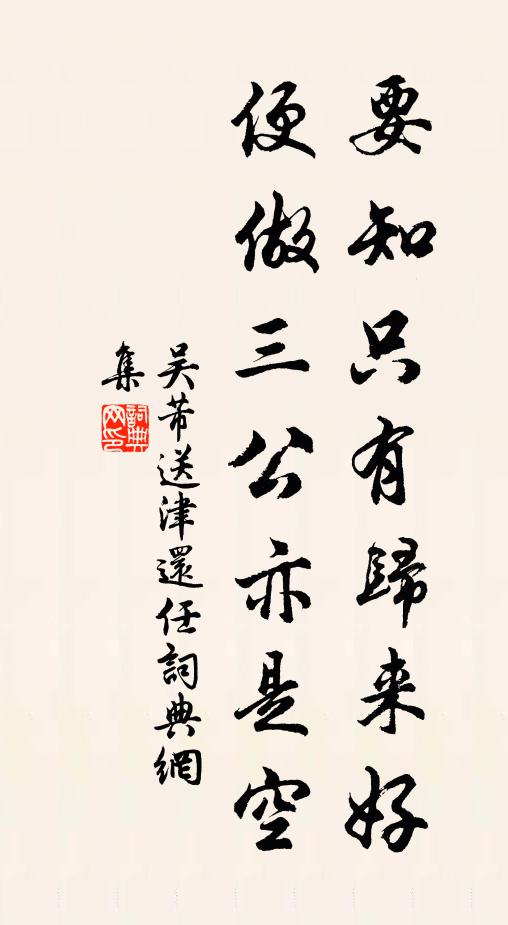 要知只有歸来好
便做三公亦是空
吴芾送津還任詞典網
集
詞典
网印